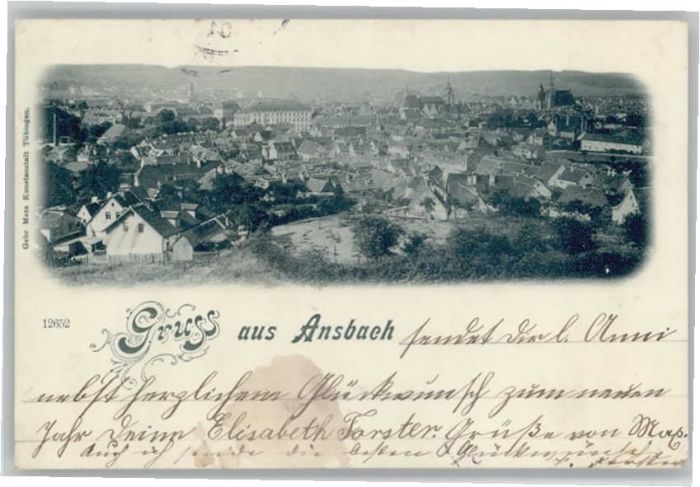 Gebr Metz Kunstanstalt Tübingen.
12652
Gruss aus Ansbach sendet dir l. Anni
nebst herzlichem Glückwunsch zum neuen
Jahr deine Elisabeth Forster. Grüße von Max.
Auch ich sende die besten Glückwünsche
Forster